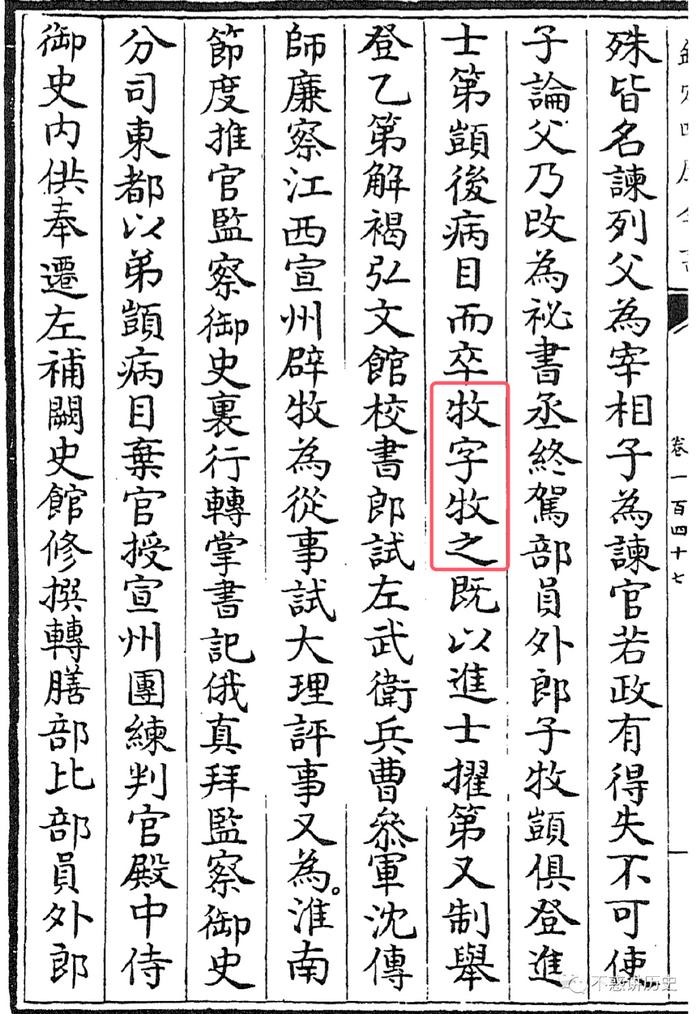 卷一百四十七
殊皆名諫列父為宰相子為諫官若政有得失不可使
子論父乃改為祕書丞終駕部員外郎子牧顗俱登進
士第顗後病目而卒牧字牧之既以進士擢第又制舉
登乙第解褐弘文館校書郎試左武衛兵曹叅軍沈傳
師廉察江西宣州辟牧為從事試大理評事又為。淮南
節度推官監察御史裏行轉掌書記俄真拜監察御史
分司東都以弟顗病目棄官授宣州團練判官殿中侍
御史内供奉遷左補闕史館修撰轉膳部比部員外郎
不惑讲历史